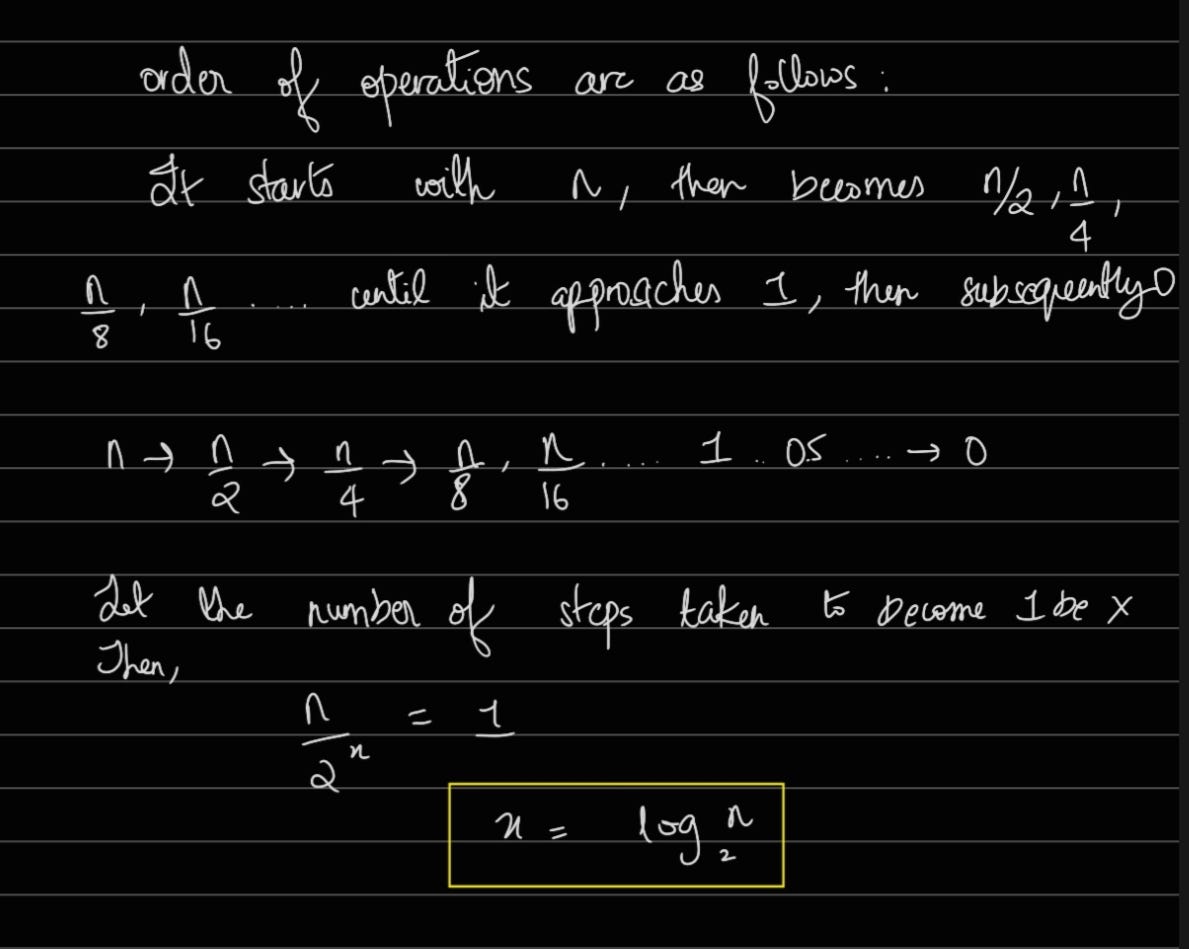 order of operations are as follows:
It starts with n, then becomes n/2, n/4,
n/8, n/16 ..... until it approaches 1, then subsequently 0
n → n/2 → n/4 → n/8, n/16 ..... 1 .. 05 .... → 0
Let the number of steps taken to become 1 be x
Then,
n/2^x = 1
x = log₂ n